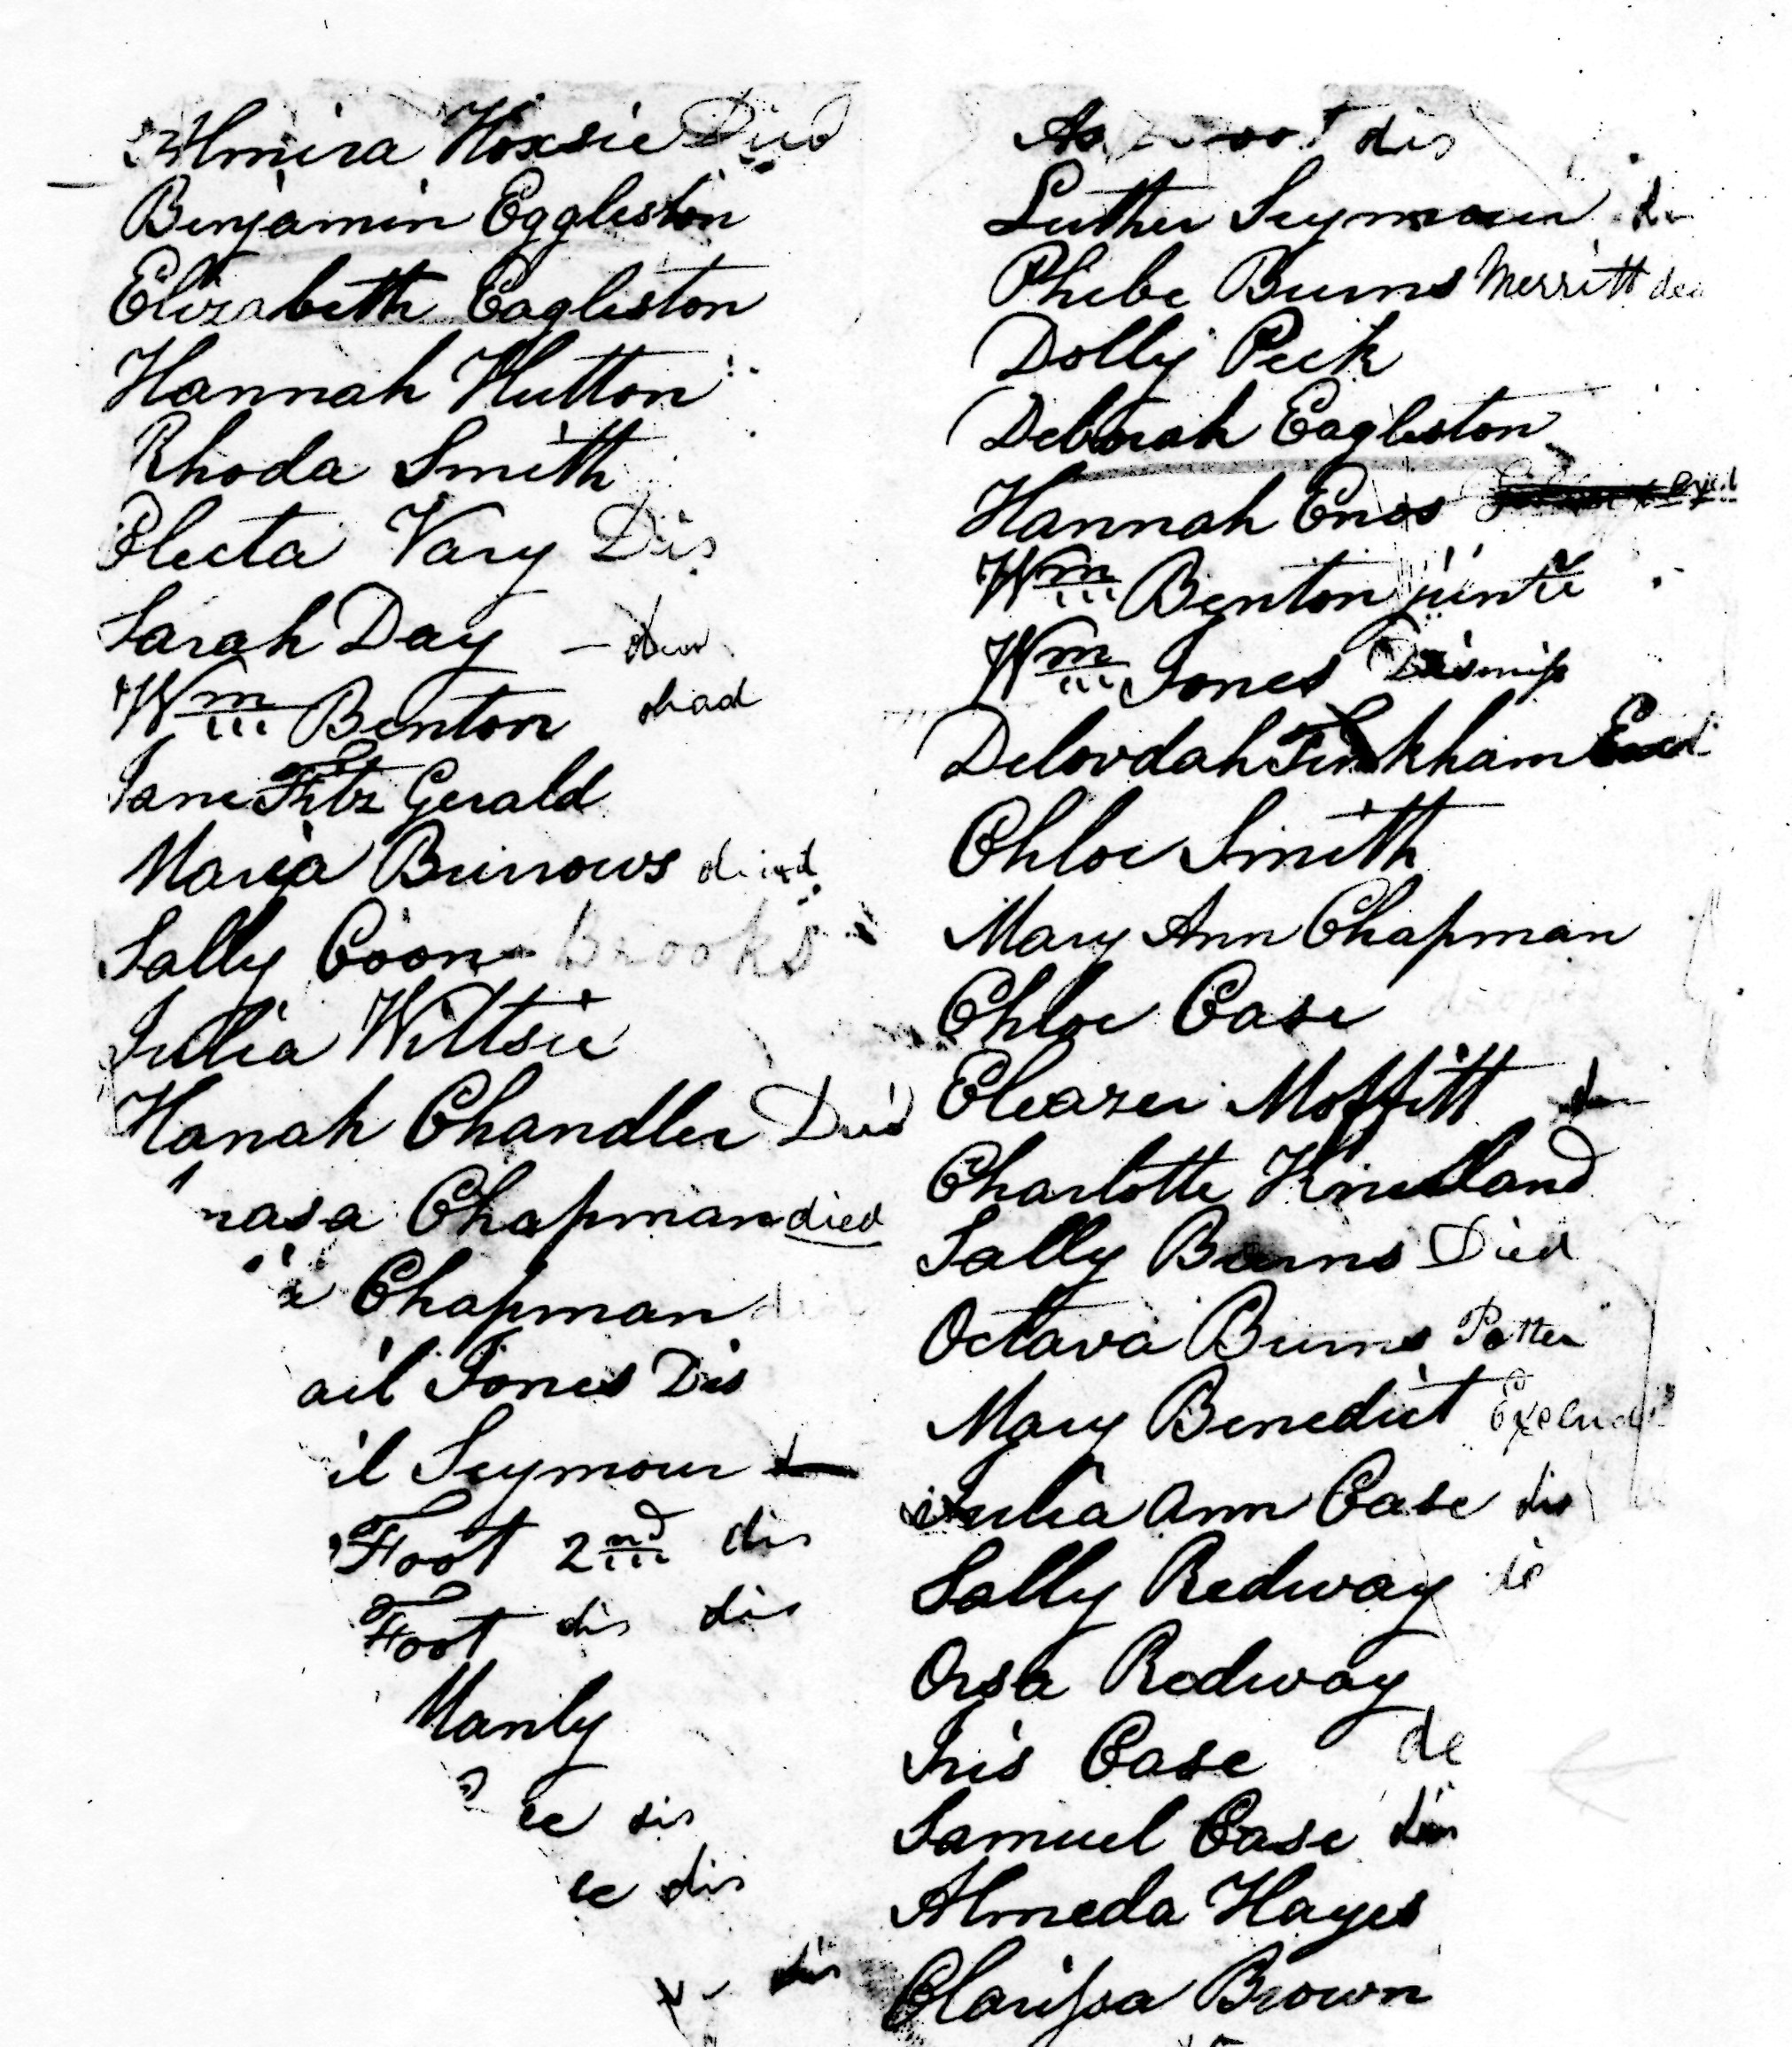 Almira Hoxsie Died
Benjamin Eggleston
Elizabeth Eagleston
Hannah Hutton
Rhoda Smith
Electa Vary Dis
Sarah Day
Wm Benton dead
Jane Fitz Gerald
Maria Burrows died
Sally Coon Brooks
Julia Wiltsie
Hanah Chandler Died
masa Chapman died
Chapman
ail Jones Dis
il Seymour
Foot 2nd dis
Foot dis dis
Manly
se dis
se dis
dis
dis
Luther Seymour
Phebe Burns Merritt dea
Dolly Peck
Deborah Eagleston
Hannah Enos
Wm Benton
Wm Jones Dismiss
Delovdah Tinkham
Chloe Smith
Mary Ann Chapman
Chloe Case
Eleazer Moffitt
Charlotte Kneeland
Sally Burns Died
Octava Burns Potter
Mary Benedict Exclud
Julia Ann Case dis
Sally Redway is
Orsa Redway
Iris Case de
Samuel Case dis
Almeda Hayes
Clarissa Brown